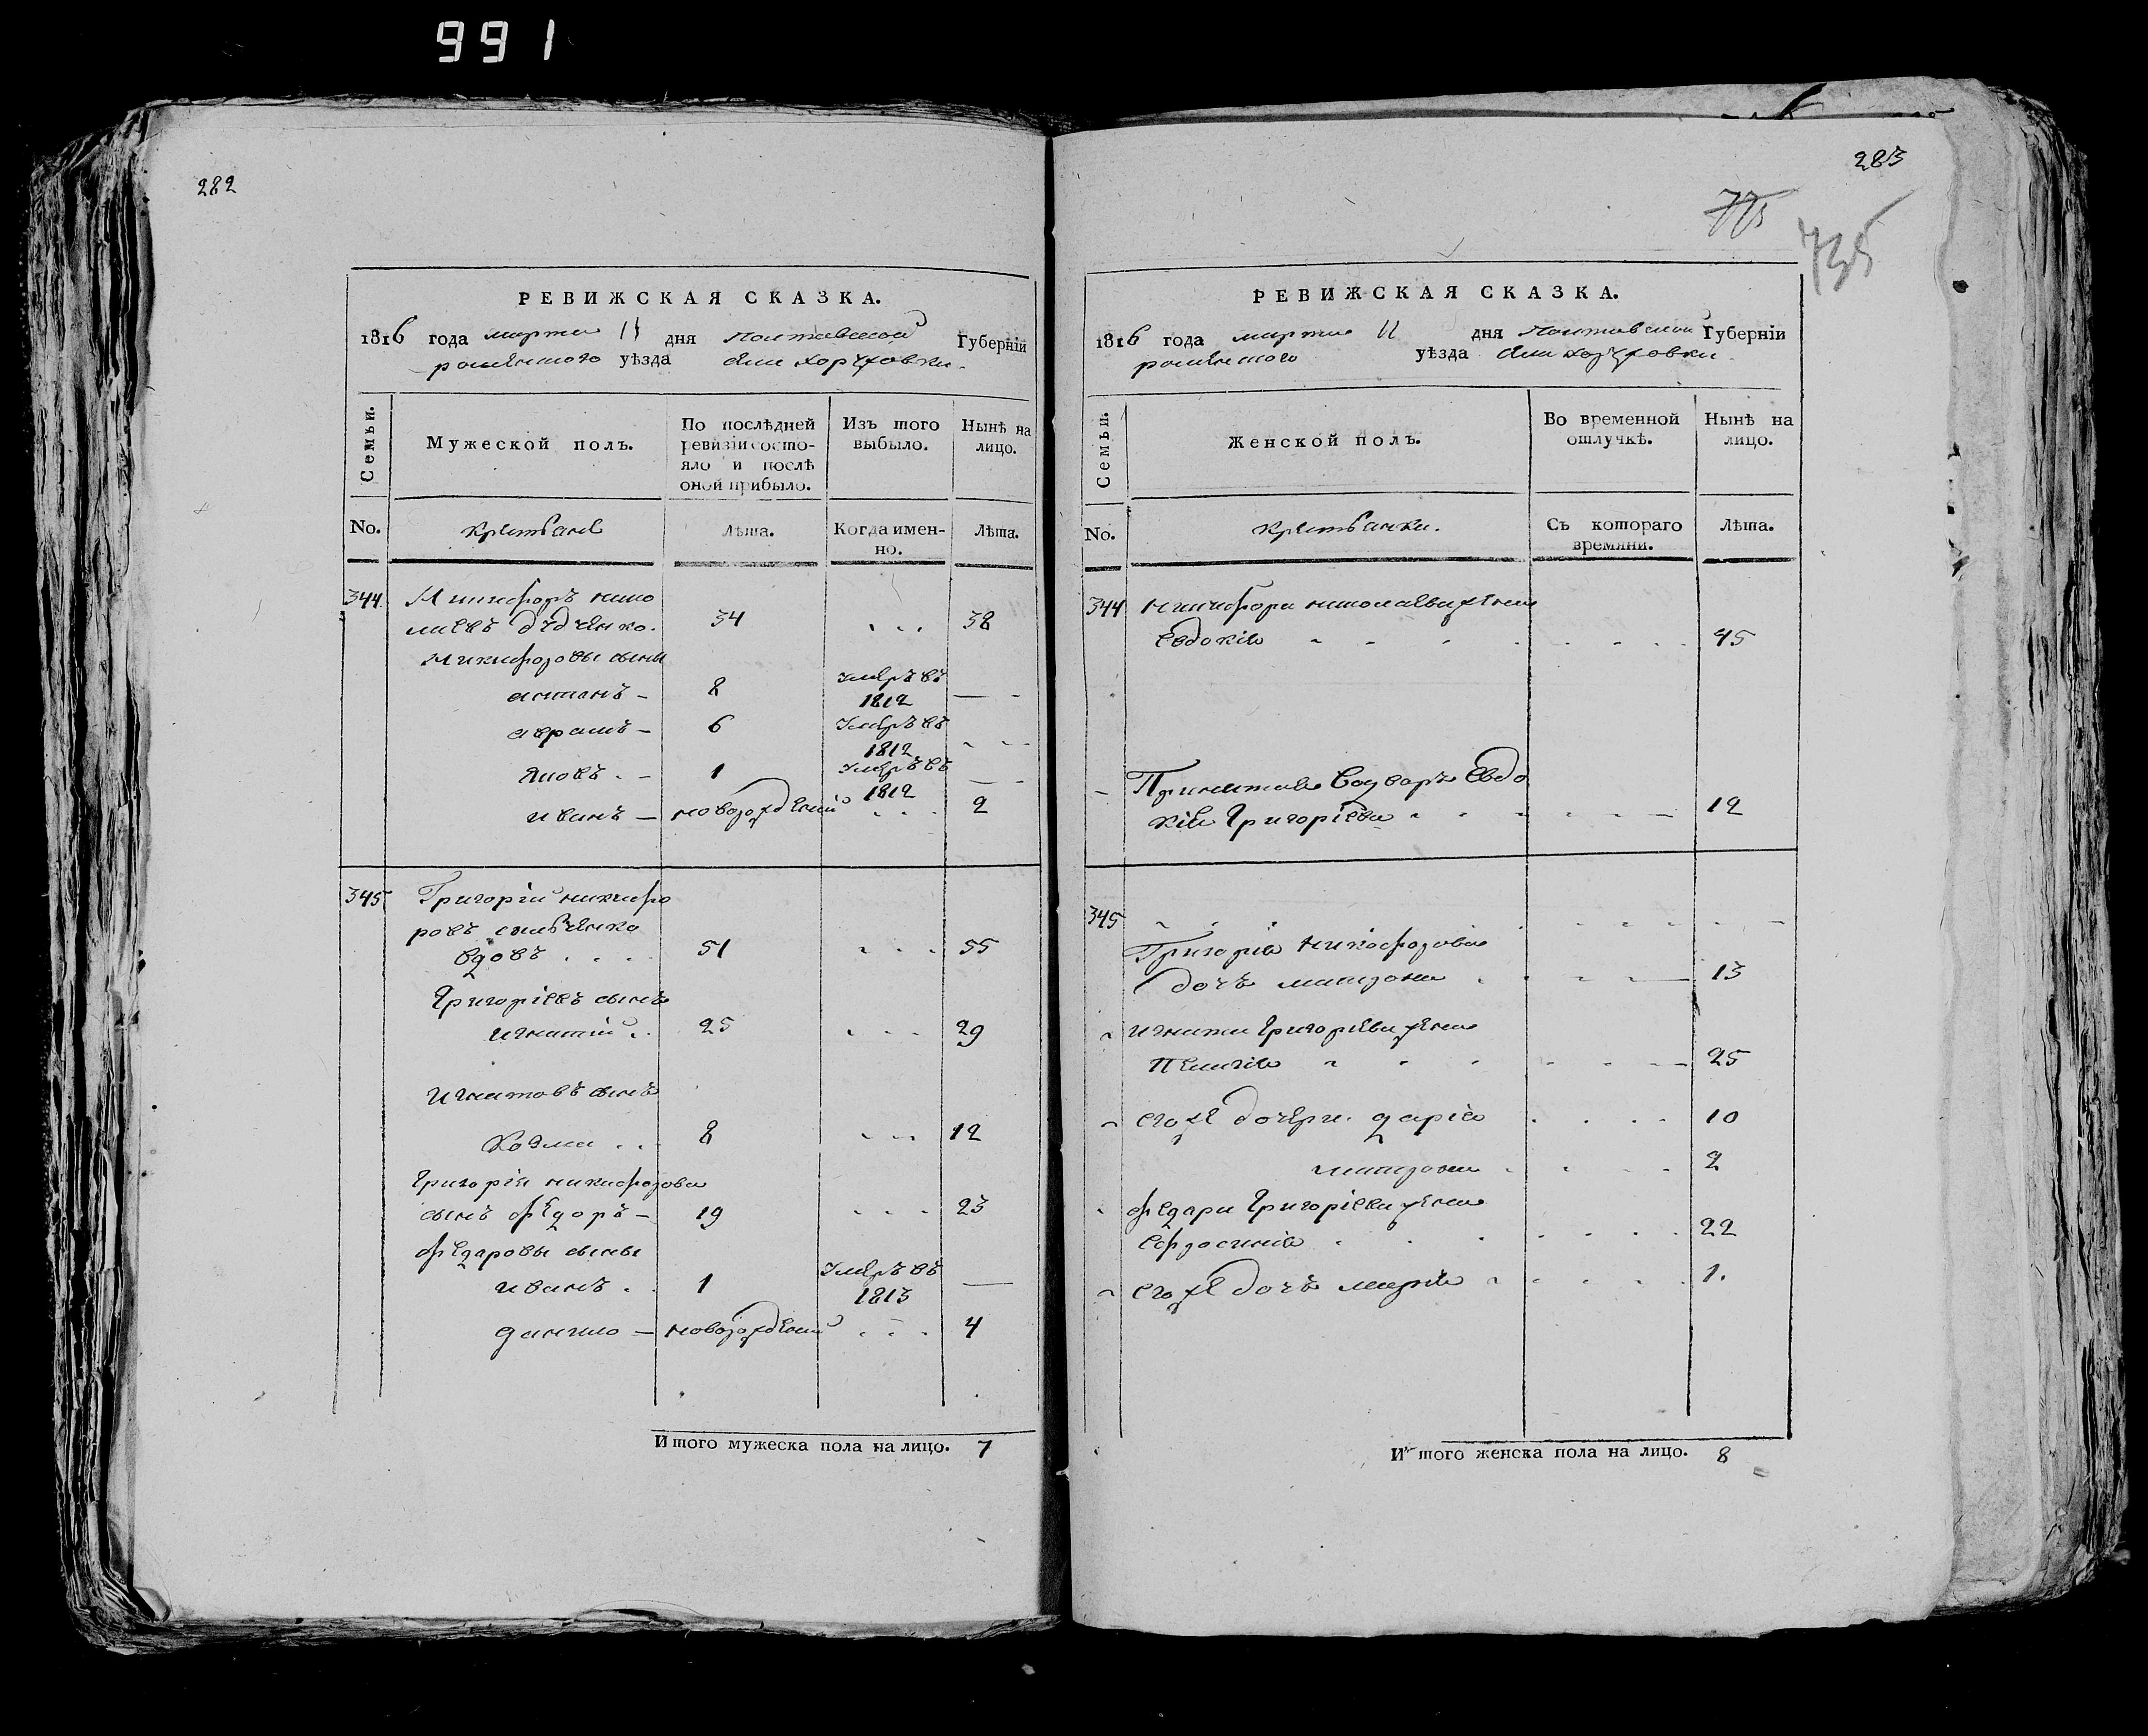 991
282
РЕВИЖСКАЯ СКАЗКА.
1816 года марта 11 дня полтавской Губерніи
роменского уѣзда
Семьи.
Мужеской полъ.
По послѣдней ревизіи состо-
яло и послѣ
оной прибыло.
Изъ того
выбыло.
Нынѣ на
лицо.
No.
Лѣта.
Когда имен-
но.
Лѣта.
344
34 ... 38
Никифоровы сыны
8 умеръ въ
1812
аврамъ 6 умеръ въ
1812
яковъ 1 умеръ въ
1812
иванъ новорожденній 2
345 Григорій никифо
ровъ
вдовъ 51 55
Григоріевъ сынъ
игнатій 25 29
игнатовъ сынъ
козма 8 12
Григорія никифорова
сынъ федоръ 19 23
федаровы сыны
иванъ 1 умеръ въ
1813
данило новорожденній 4
Итого мужеска пола на лицо. 7
283
775
735
РЕВИЖСКАЯ СКАЗКА.
1816 года марта 11 дня полтавской Губерніи
роменского уѣзда
Семьи.
Женской полъ.
Во временной
отлучкѣ.
Нынѣ на
лицо.
No.
Съ котораго
времяни.
Лѣта.
344 никифора николаева жена
Евдокія 45
Евдо
кія Григоріева 12
345
Григорія Никифорова
дочь 13
игната Григоріева жена
25
егоже дочери дарія 10
2
федара Григоріева жена
ефросинія 22
егоже дочь марія 1.
Итого женска пола на лицо. 8